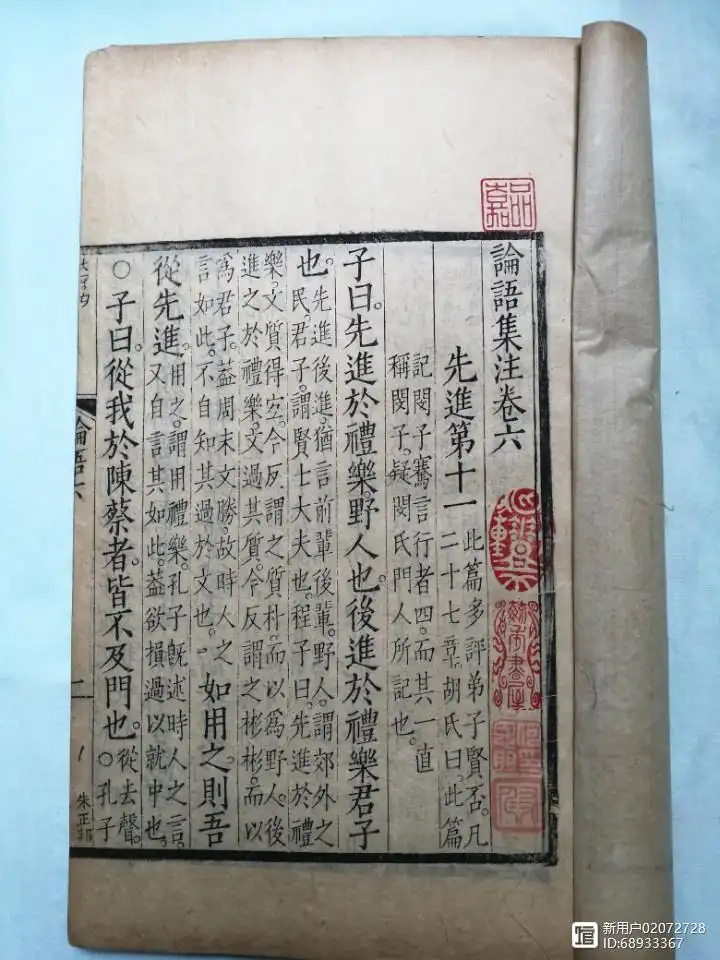 論語集注卷六
先進第十一
此篇多評弟子賢否。凡
二十七章。胡氏曰。此篇
記閔子騫言行者四。而其一直
稱閔子。疑閔氏門人所記也。
子曰。先進於禮樂。野人也。後進於禮樂。君子
也。
先進後進。猶言前輩後輩。野人。謂郊外之
民。君子。謂賢士大夫也。程子曰。先進於禮
樂。文質得宜。今反謂之質朴。而以爲野人。後
進之於禮樂。文過其質。今反謂之彬彬。而以
爲君子。葢周末文勝。故時人之
言如此。不自知其過於文也。
如用之。則吾
從先進。
用之。謂用禮樂。孔子旣述時人之言。
又自言其如此。葢欲損過以就中也。
○子曰。從我於陳蔡者。皆不及門也。
從去聲。
○孔子
論語六
新用户02072728
ID:68933367